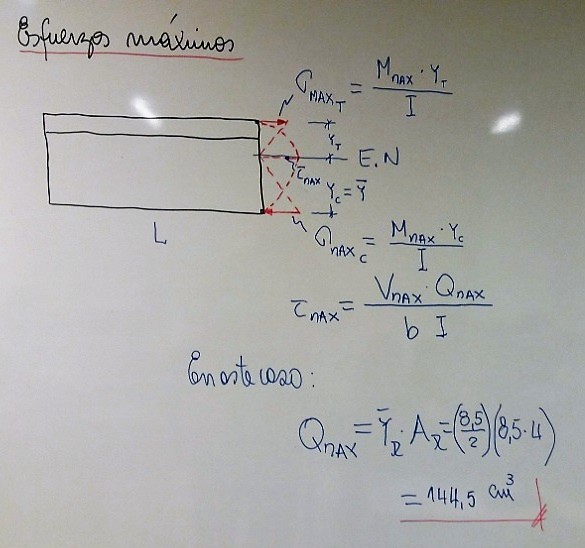 Esfuerzos máximos
σMAX_T = MMAX · Y_T / I
Y_T
E.N
τMAX
Y_C = Ȳ
L
σMAX_C = MMAX · Y_C / I
τMAX = VMAX · QMAX / b I
En este caso:
QMAX = Ȳ_R · A_R = (8,5/2)(8,5·4)
= 144,5 cm³